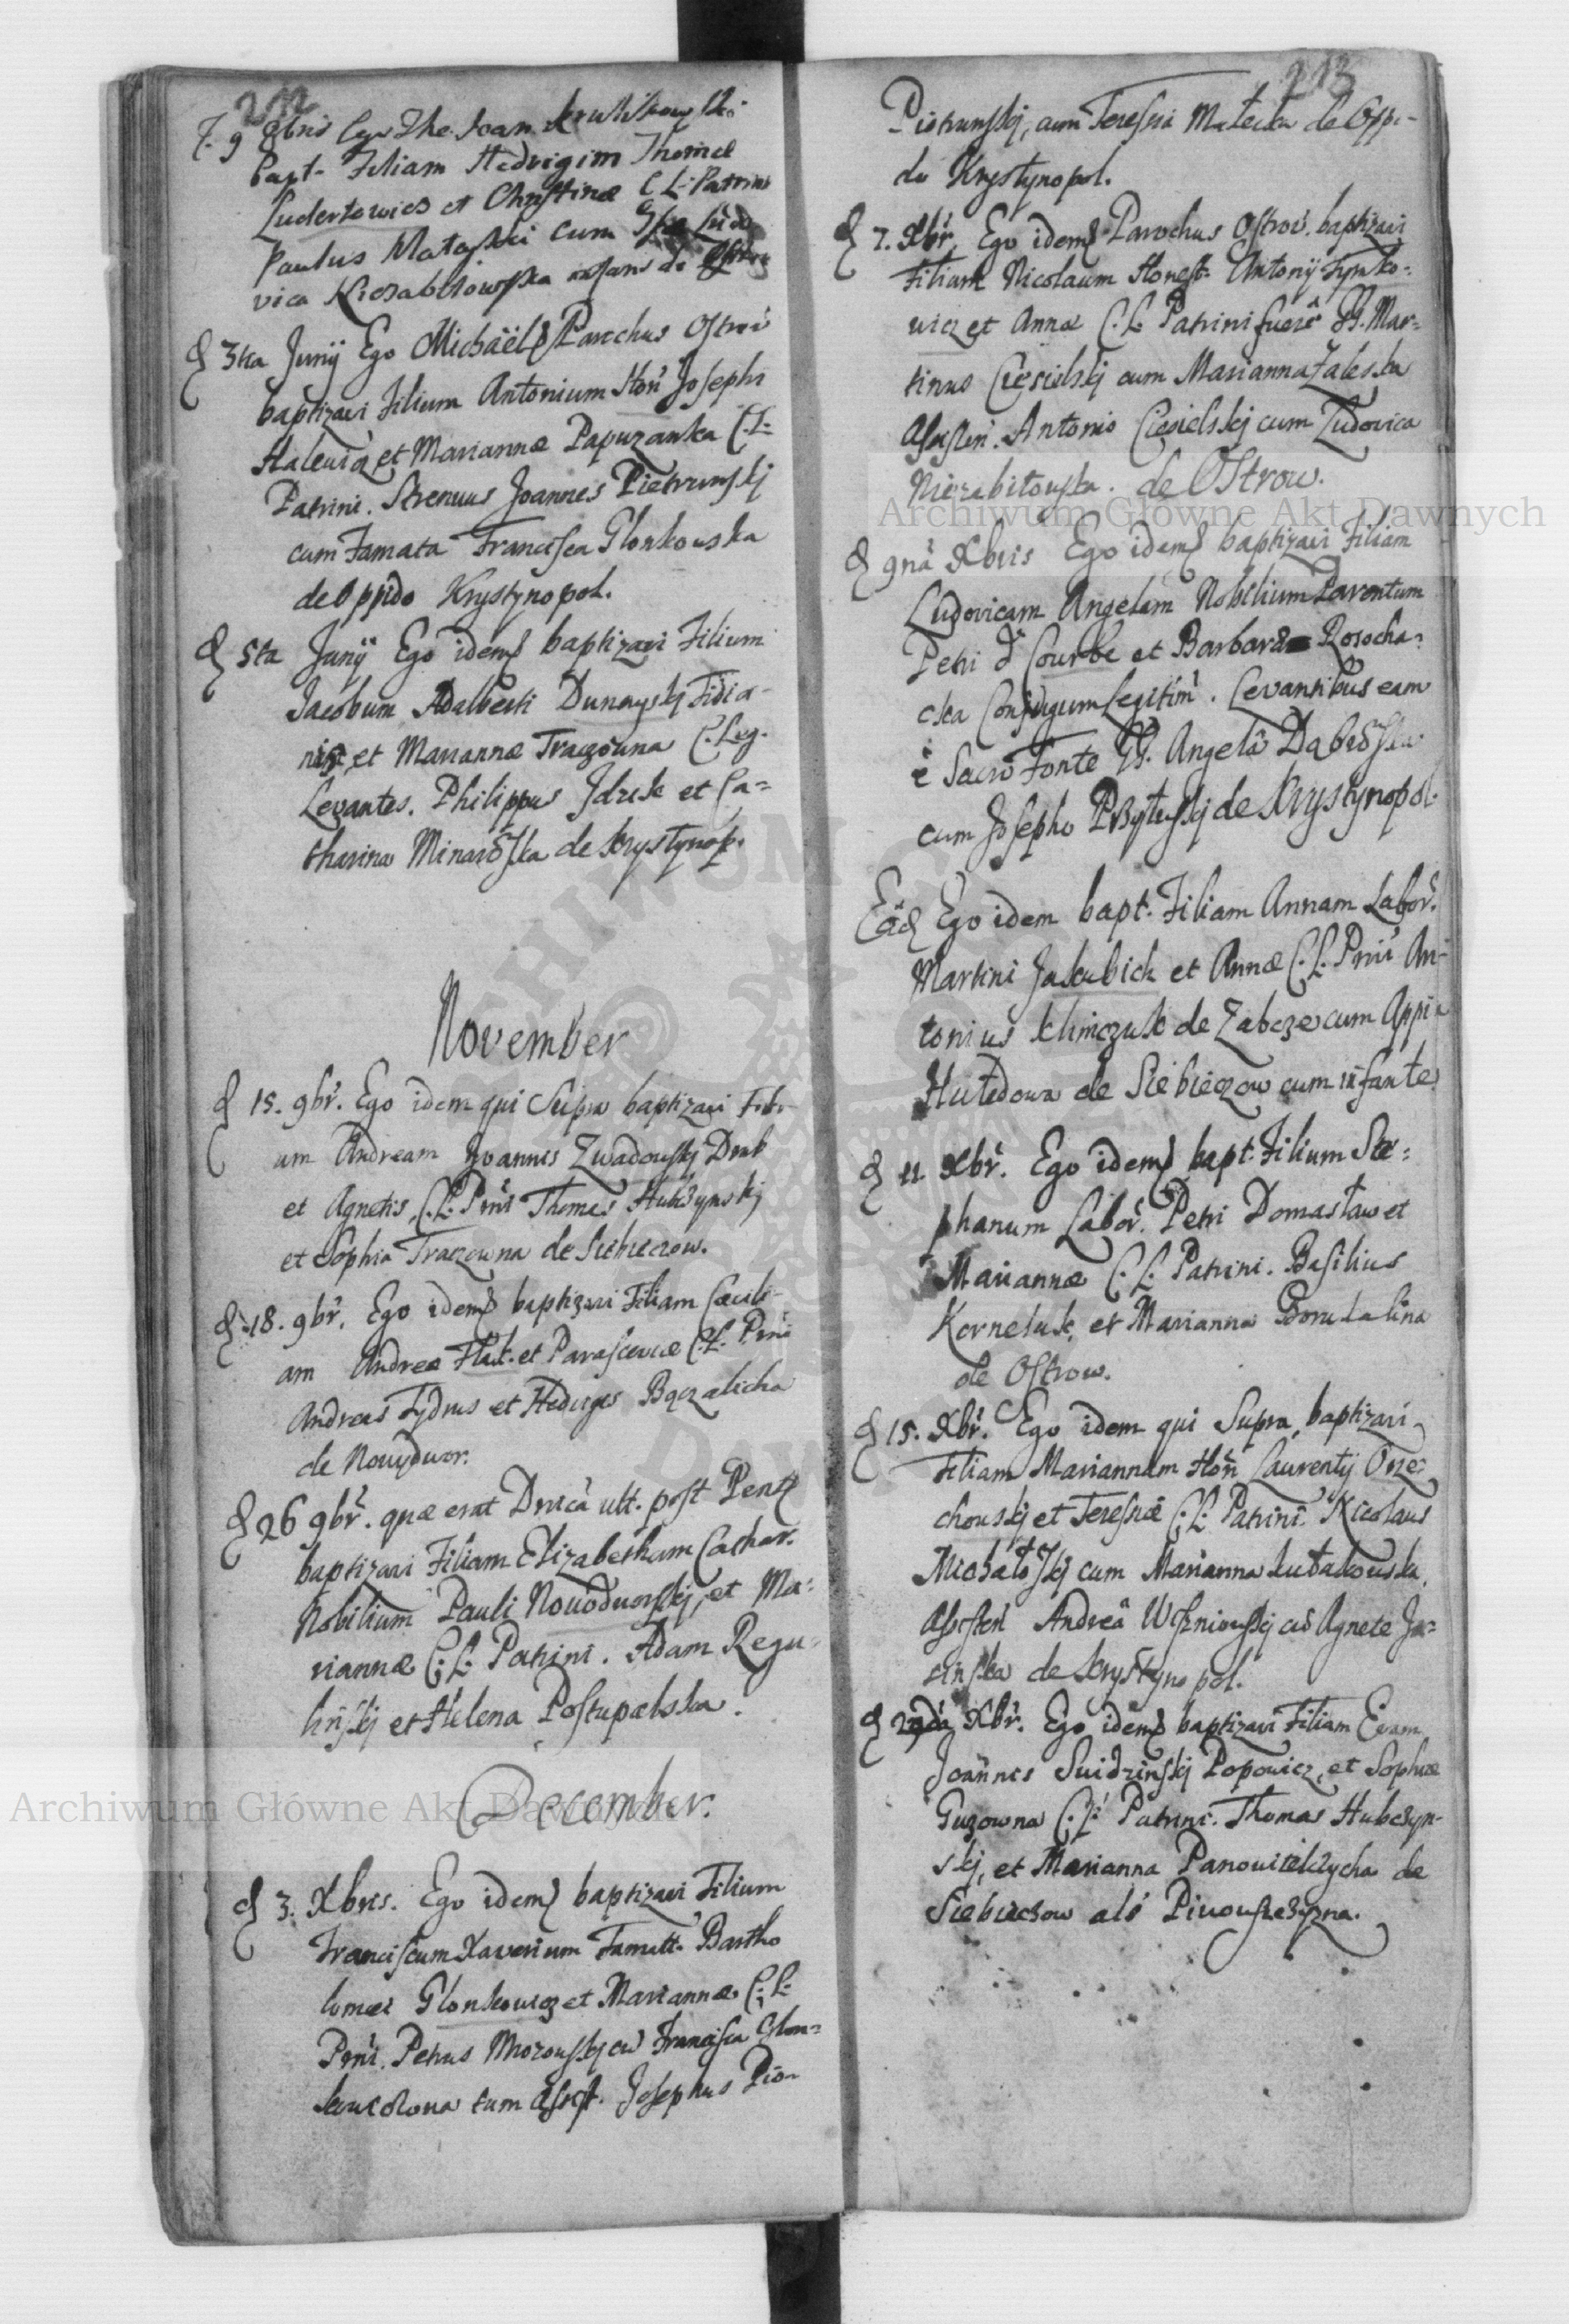 212
F. 9 Xbris Ego Joan
Bapt. Filiam Hedvigim Thomæ
Ludertowicz et Christinæ C. L. Patrini
Paulus Matayski cum
vica Niezabitowska
d 3tia Junÿ Ego Michaël Parochus Ostrov
baptizavi Filium Antonium Hon Josephi
Halewicz et Mariannæ Papuzanka C. L.
Patrini. Strenuus Joannes Pietrunskj
cum Famata Francisca Glonkowska
de Oppido Krystynopol.
d 5ta Junÿ Ego idem baptizavi Filium
Jacobum Adalberti Dunayskj Fidia-
nis et Mariannæ Traczowna C. Leg.
Levantes. Philippus Jdzik et Ca=
tharina Minaroska de Krystynop.
November
d 15. 9br. Ego idem qui Supra baptizavi Fili-
um Andream Joannis Zwadowskj Drab
et Agnetis, C. L. Prni Thomas Hubczynskj
et Sophia Traczowna de Siebieczow.
d. 18. 9br. Ego idem baptizavi Filiam Cæcili-
am Andreæ Hlut. et Parascevæ C. L. Prni
Andreas Fydrus et Heduigis Bączalicha
de Nowydwor.
d 26 9br. quæ erat Dnica ult. post Pent
baptizavi Filiam Elizabetham Cathar.
Nobilium Pauli Nowodworskj, et Ma=
riannæ C. L. Patrini. Adam Regu-
linskj et Helena Postupalska.
December.
d 3. Xbris. Ego idem baptizavi Filium
Franciscum Xaverium Famatt. Bartho
lomæi Glonkowicz et Mariannæ C. L.
Prni. Petrus Mrozowskj cu Francisca Glon=
kowiczowa tum Assist. Josephus Pio-
213
Piotrunskj, cum Teressia Matecka de Oppi-
do Krystynopol.
d 7. Xbr. Ego idem Parochus Ostrov. baptizavi
Filium Nicolaum Honest. Antonÿ Tymko=
wicz et Annæ C. L. Patrini fuere GG. Mar=
tinus Ciesielskj cum Marianna Zaleska
Assisten. Antonio Ciesielskj cum Ludovica
Niezabitowska. de Ostrow.
d 9na Xbris Ego idem baptizavi Filiam
Ludovicam Angelam Nobilium Parentum
Petri d Courbe et Barbara Rosocha=
cka Conjugum Legitim. Levantibus eam
è Sacro Fonte GG. Angela Dabroska
cum Josepho Przytuskj de Krystynopol.
Eâd Ego idem bapt. Filiam Annam Labor.
Martini Jakubick et Annæ C. L. Prni An-
tonius Klimczuk de Zabcze cum Appia
Hutedowa de Siebieczow cum infante
d 11. Xbr. Ego idem bapt. Filium Ste=
phanum Labor. Petri Domasław et
Mariannæ C. L. Patrini. Basilius
Korneluk, et Marianna Borutalina
de Ostrow.
d 15. Xbr. Ego idem qui Supra baptizavi
Filiam Mariannam Hon Laurentÿ Orze=
chowskj et Teressiæ C. L. Patrini. Nicolaus
Michałoskj cum Marianna Kułakowska,
Assisten Andreâ Wiszniowskj cu Agnete Ja=
sinska de Krystynopol.
d Xbr. Ego idem baptizavi Filiam Evam
Joannis Swidzinskj Popowicz, et Sophiæ
Guzowna C. L. Patrini. Thomas Hubczyn-
skj, et Marianna Panowiczycha de
Siebieczow als Piwowszczyzna.
Archiwum Główne Akt Dawnych
Archiwum Główne Akt Dawnych